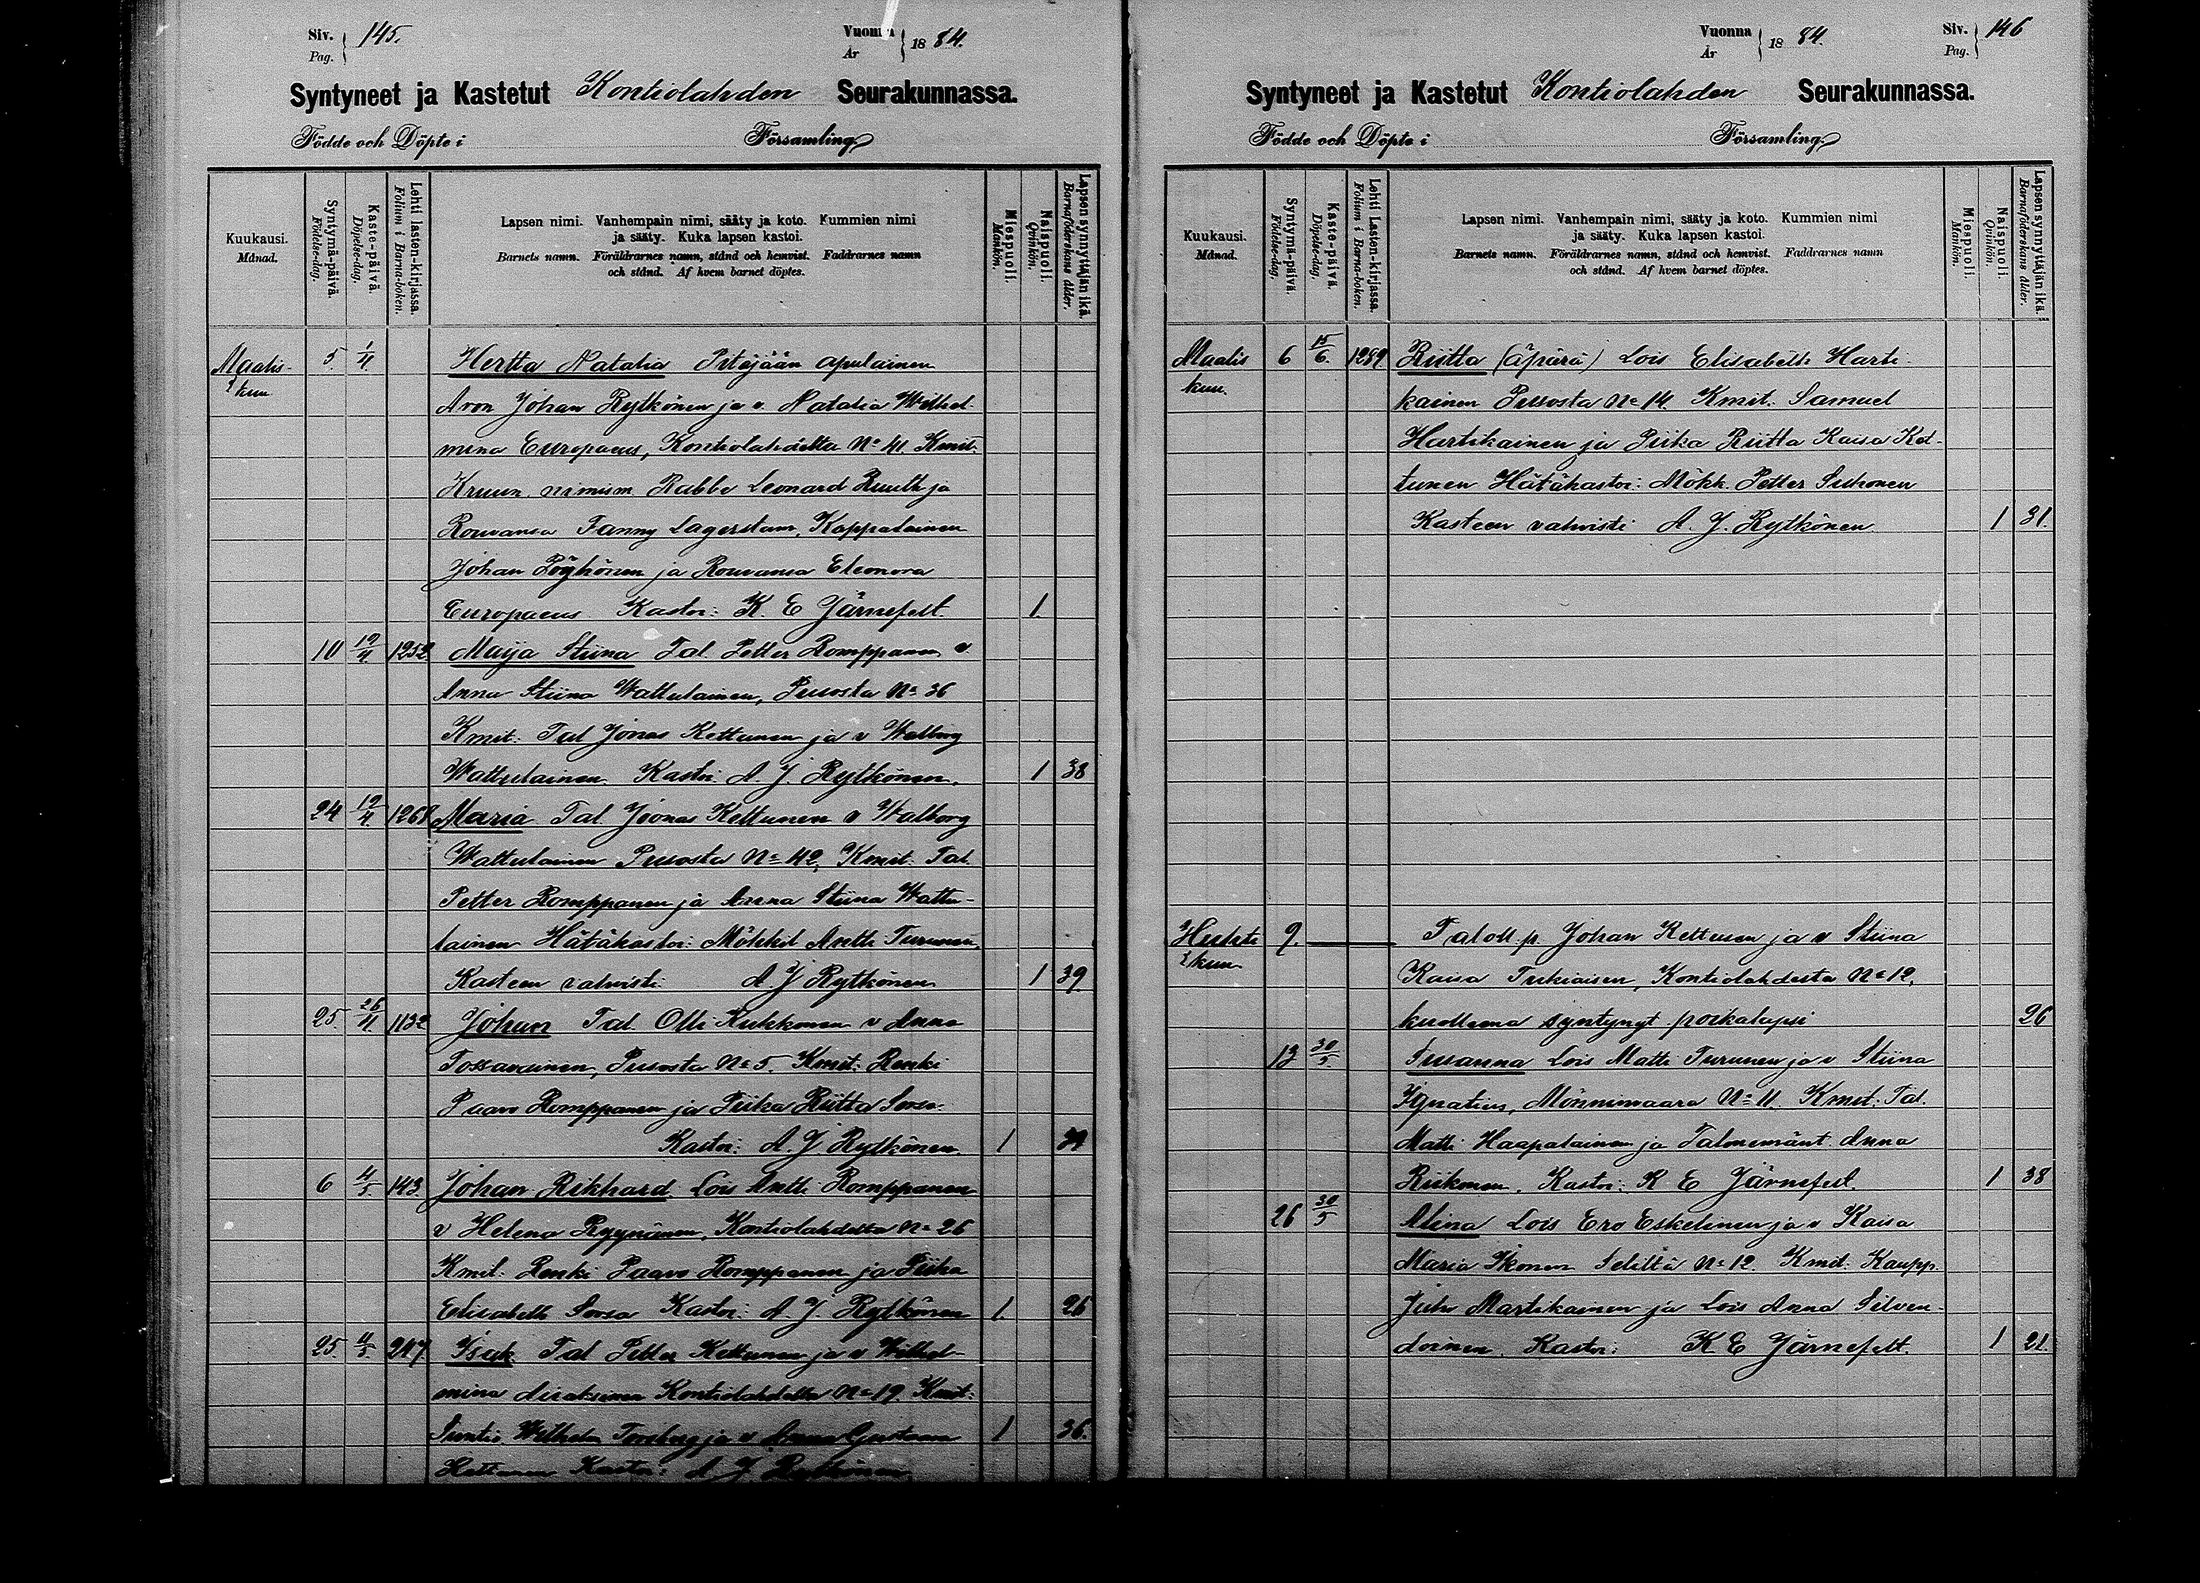 Siv. Pag. 145.
Vuonna År 1884.
Syntyneet ja Kastetut Kontiolahden Seurakunnassa.
Födde och Döpte i Församling
Kuukausi. Månad.
Syntymä-päivä. Födelse-dag.
Kaste-päivä. Döpelse-dag.
Lehti lasten-kirjassa. Folium i Barna-boken.
Lapsen nimi. Vanhempain nimi, sääty ja koto. Kummien nimi
ja sääty. Kuka lapsen kastoi.
Barnets namn. Föräldrarnes namn, stånd och hemvist. Faddrarnes namn
och stånd. Af hvem barnet döptes.
Miespuoli. Mankön.
Naispuoli. Qvinkön.
Lapsen synnyttäjän ikä. Barnaföderskans ålder.
Maalis- 5. 1/4. Hertta Natalia apulainen
kuu Aron Johan Rytkönen ja v. Natalia Wilhel-
mina Europaeus, Kontiolahdelta No 41. Kmit.
Kruun. nimism. Rabbe Leonard Ruuth ja
Rouvansa Fanny Lagerstam, Kappalainen
Johan Pöyhönen ja Rouvansa Eleonora
Europaeus Kastoi: K. E Järnefelt. 1.
10 19/4. 1252 Maija Stiina Tal. Petter Romppanen v.
Anna Stiina Wattulainen, Pusosta No 36
Kmit: Tal Jonas Kettunen ja v Walborg
Wattulainen. Kastoi: A. J. Rytkönen. 1 38
24 19/4. 1268 Maria Tal Joonas Kettunen v Walborg
Wattulainen Pusosta No 42, Kmit. Tal.
Petter Romppanen ja Anna Stiina Wattu-
lainen Hätäkastoi: Mökkil Antti Turunen,
Kasteen vahvisti: A J Rytkönen 1 39
25. 26/4 1132 Johan Tal Olli Kukkonen v Anna
Tossavainen, Pusosta No 5. Kmit: Renki
Paavo Romppanen ja Piika Riitta Sorsa.
Kastoi: A. J Rytkönen 1
6 4/5 143. Johan Rikhard Lois Antti Romppanen
v Helena Ryynänen, Kontiolahdelta No 26
Kmit: Renki Paavo Romppanen ja Piika
Elisabeth Sorsa Kastoi: A. J. Rytkönen 1. 26
25. 4/5. 247. Isak Tal Petter Kettunen ja v Wilhel-
mina Kontiolahdelta No 19. Kmit:
Suntio Wilhelm Forsberg ja v Anna Gustaava
Kastoi: A J Rytkönen 1 36.
Vuonna År 1884.
Siv. Pag. 146
Syntyneet ja Kastetut Kontiolahden Seurakunnassa.
Födde och Döpte i Församling
Kuukausi. Månad.
Syntymä-päivä. Födelse-dag.
Kaste-päivä. Döpelse-dag.
Lehti Lasten-kirjassa. Folium i Barna-boken.
Lapsen nimi. Vanhempain nimi, sääty ja koto. Kummien nimi
ja sääty. Kuka lapsen kastoi.
Barnets namn. Föräldrarnes namn, stånd och hemvist. Faddrarnes namn
och stånd. Af hvem barnet döptes.
Miespuoli. Mankön.
Naispuoli. Qvinkön.
Lapsen synnyttäjän ikä. Barnaföderskans ålder.
Maalis 6 15/6. 1289. Riitta (äpärä) Lois Elisabeth Harti-
kuu. kainen Pusosta No 14. Kmit. Samuel
Hartikainen ja Piika Riitta Kaisa Ket-
tunen Hätäkastoi: Mökk. Petter Suhonen
Kasteen vahvisti A. J. Rytkönen 1 31.
Huhti 9. Taloll. p. Johan Kettusen ja v Stiina
kuu Kaisa Tukiaisen, Kontiolahdesta No 12,
kuolleena syntynyt poikalapsi 26
13 30/5. Susanna Lois Matti Turunen ja v Stiina
Ignatius, Mönninvaara No 11. Kmit: Tal.
Matti Haapalainen ja Talonemänt. Anna
Riikonen. Kastoi: K E Järnefelt. 1 38
26 30/5 Alina Lois Ero Eskelinen ja v Kaisa
Maria Ikonen Seliltä No 12. Kmit: Kaupp.
Juho Martikainen ja Lois Anna Silven-
doinen. Kastoi: K E Järnefelt. 1 21.